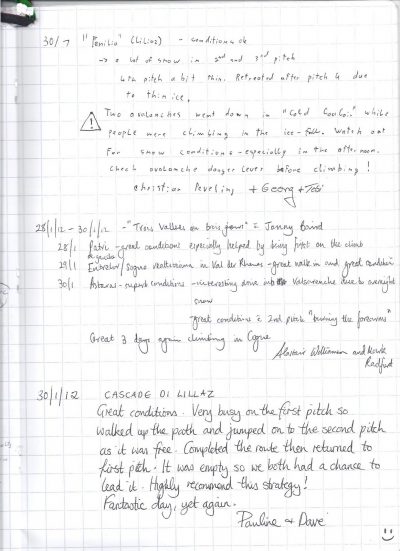 30/1 "Tenilia" (Lillaz) - conditions ok
-> a lot of snow in 2nd and 3rd pitch
4th pitch a bit thin. Retreated after pitch 4 due
to thin ice.
Two avalanches went down in "Cold Couloir" while
people were climbing in the ice-fall. Watch out
for snow conditions - especially in the afternoon.
Check avalanche danger level before climbing!
Christian + Georg + Tobi
28/1/12 - 30/1/12 - "Trois Vallees en trois jours" =
28/1 Patri - great conditions especially helped by being first on the climb
29/1 / Sogno in Val di Rhemes - great walk in and great conditions
30/1 - superb conditions - interesting drive into Valsavarenche due to overnight
snow
- great conditions 2nd pitch "burning the forearms"
Great 3 days again climbing in Cogne
Alastair Williamson and Mark
Radford
30/1/12 CASCADE DI LILLAZ
Great conditions. Very busy on the first pitch so
walked up the path and jumped on to the second pitch
as it was free. Completed the route then returned to
first pitch. It was empty so we both had a chance to
lead it. Highly recommend this strategy!
Fantastic day, yet again.
Pauline + Dave